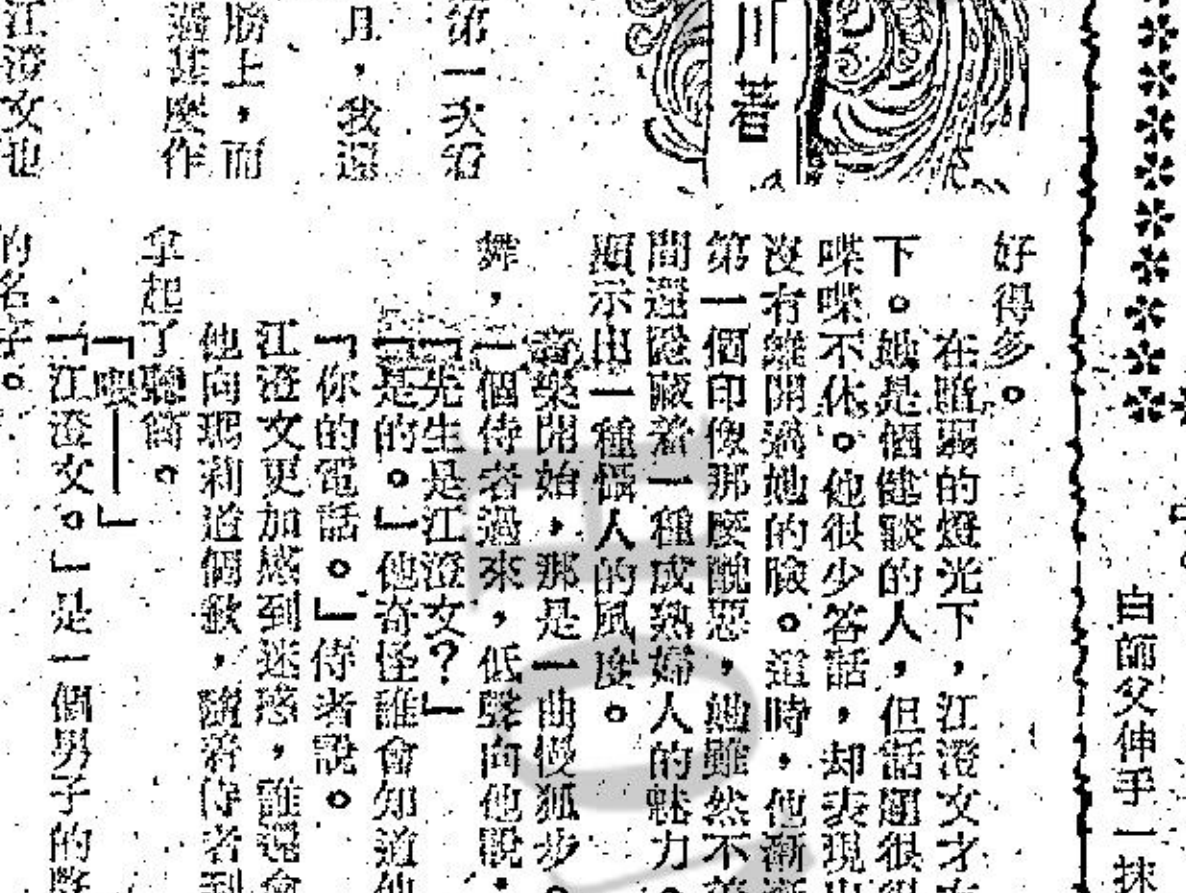 白師父伸手一抹
川著
第一次看
月，我還
勝上，而
過甚麼作
江澄文也
好得多。
在暗弱的燈光下，江澄文才
下。她是個健談的人，但話題很
喋喋不休。他很少答話，却表現出
沒有離開過她的臉。這時，他漸
第一個印像那麼醜惡，她雖然不
間還隱藏着一種成熟婦人的魅力。
顯示出一種懾人的風度。
音樂開始，那是一曲慢狐步。
舞，一個侍者過來，低聲向他說：
「先生是江澄文？」
「是的。」他奇怪誰會知道他
「你的電話。」侍者說。
江澄文更加感到迷惑，誰還會
他向瑪莉道個歉，隨着侍者到
拿起了聽筒。
「喂——」
「江澄文。」是一個男子的
的名字。